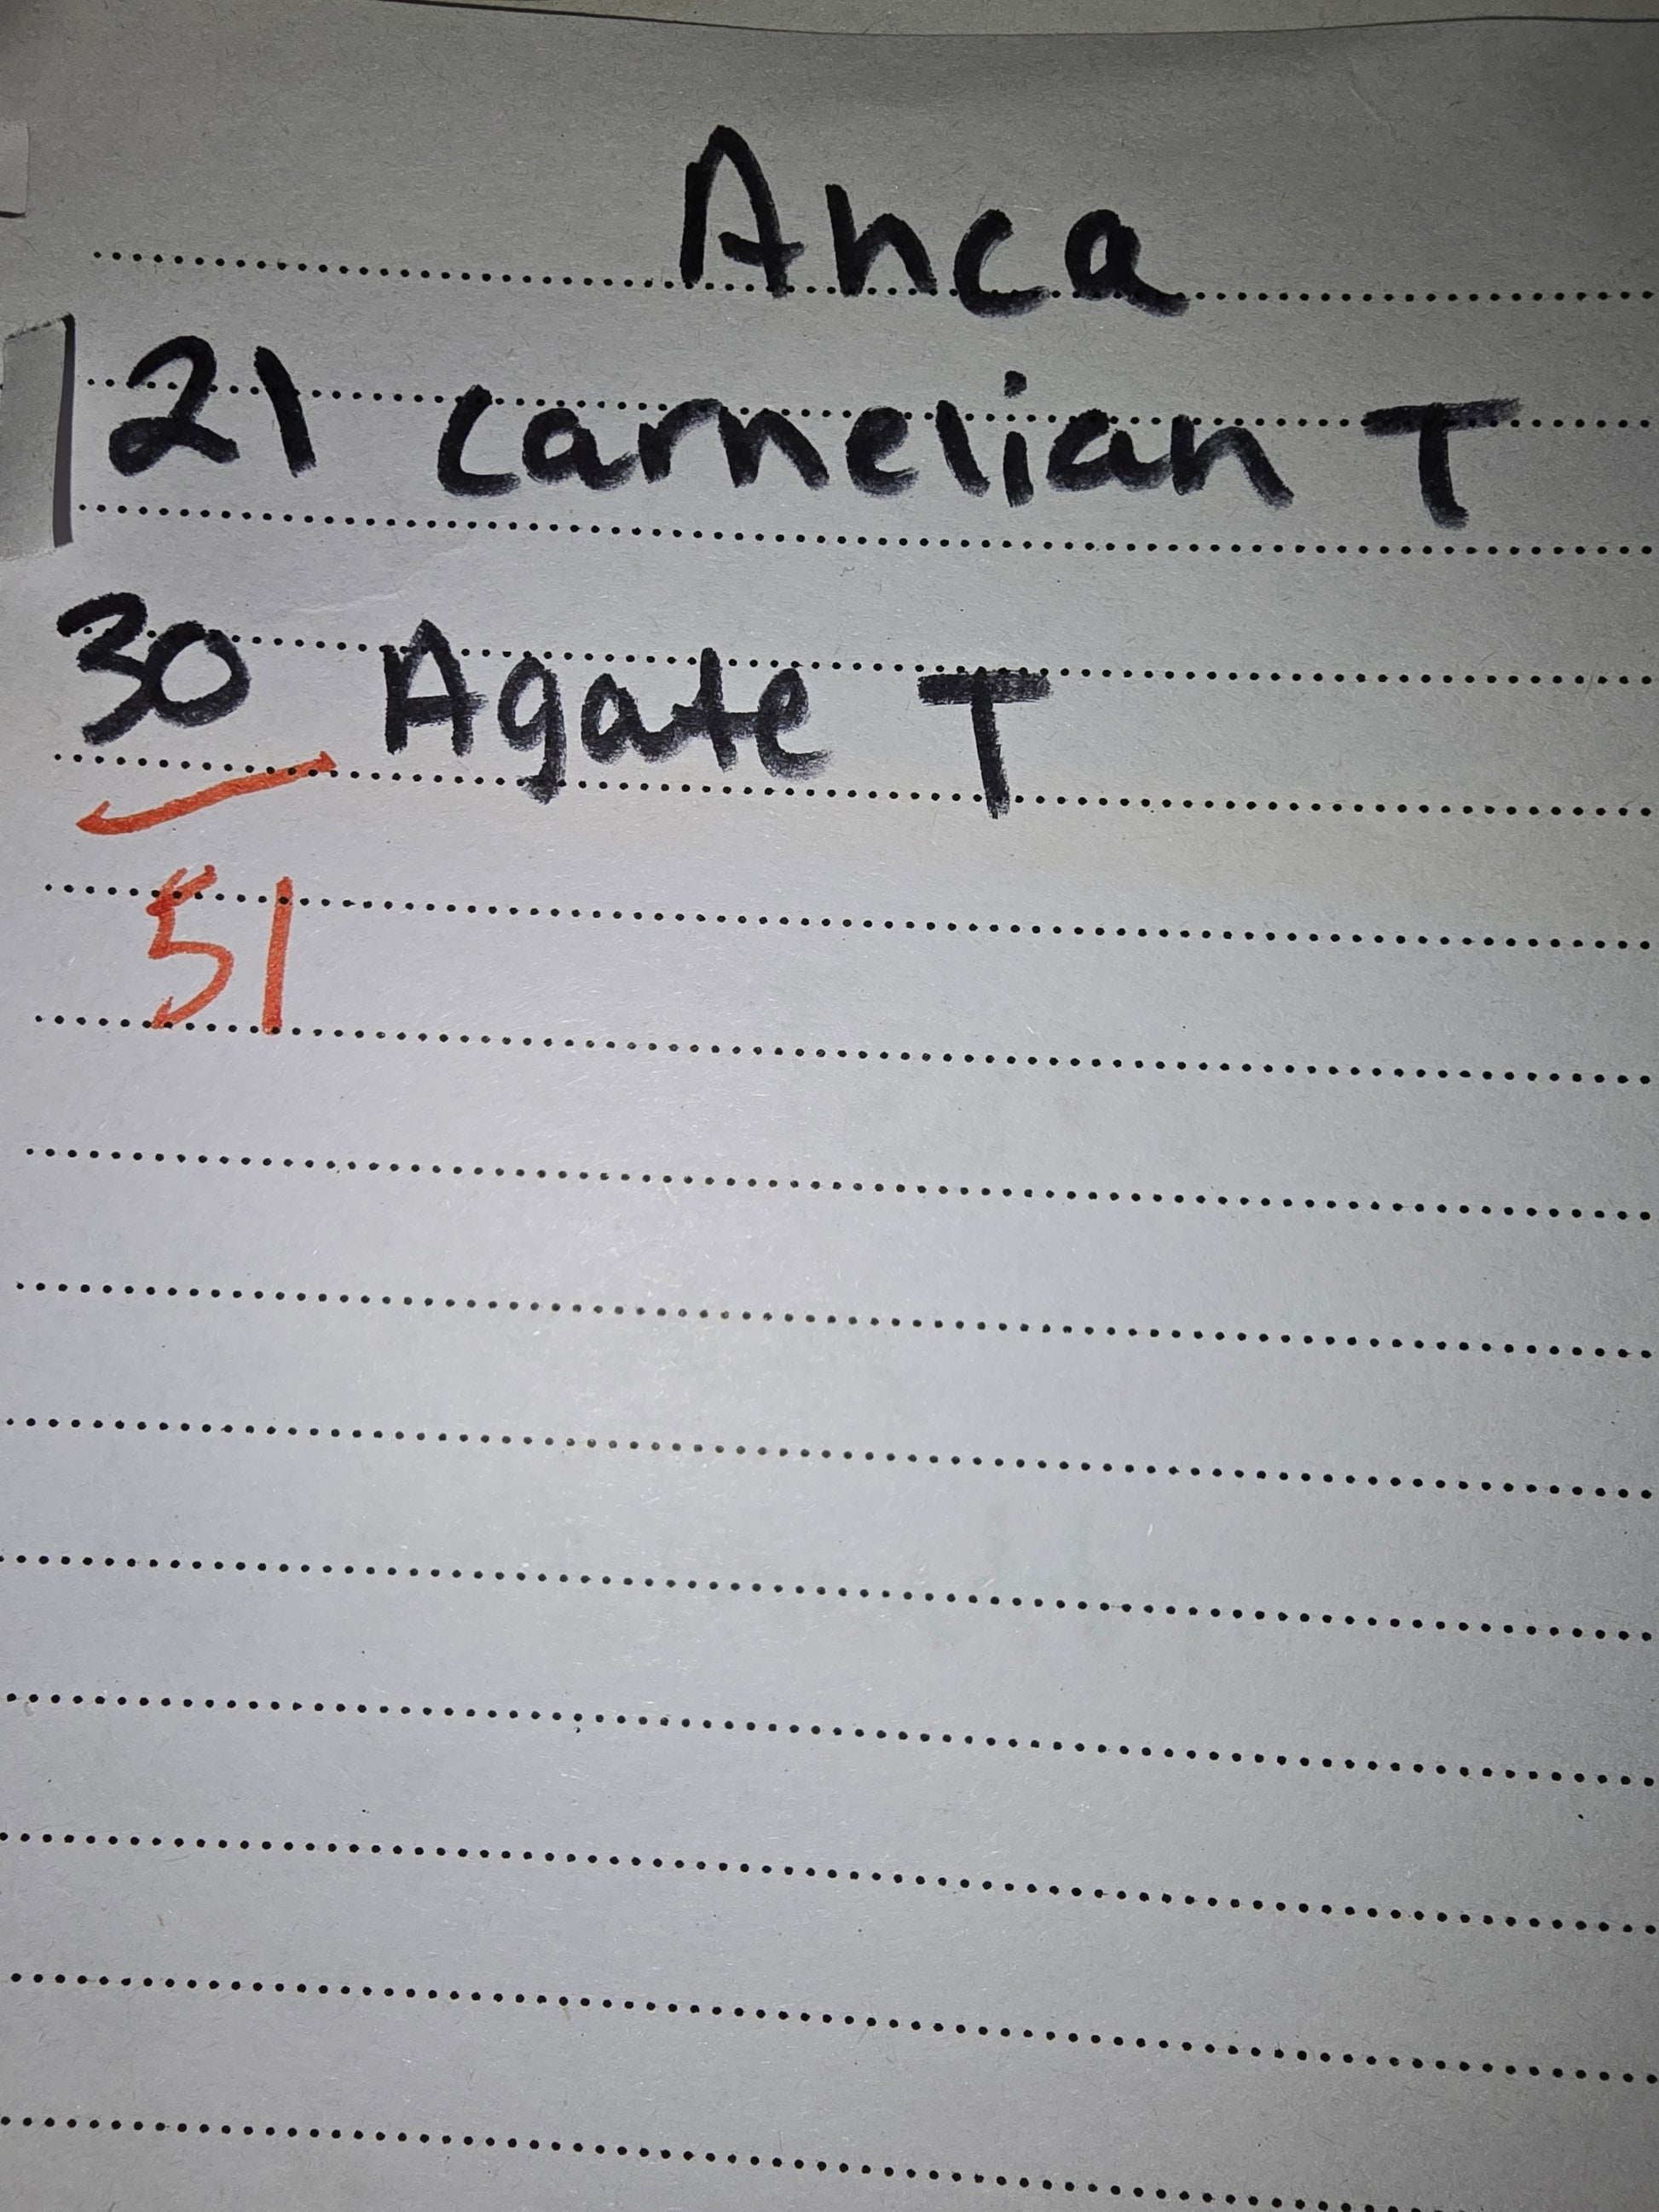 Anca
21 Carnelian T
30 Agate T
51